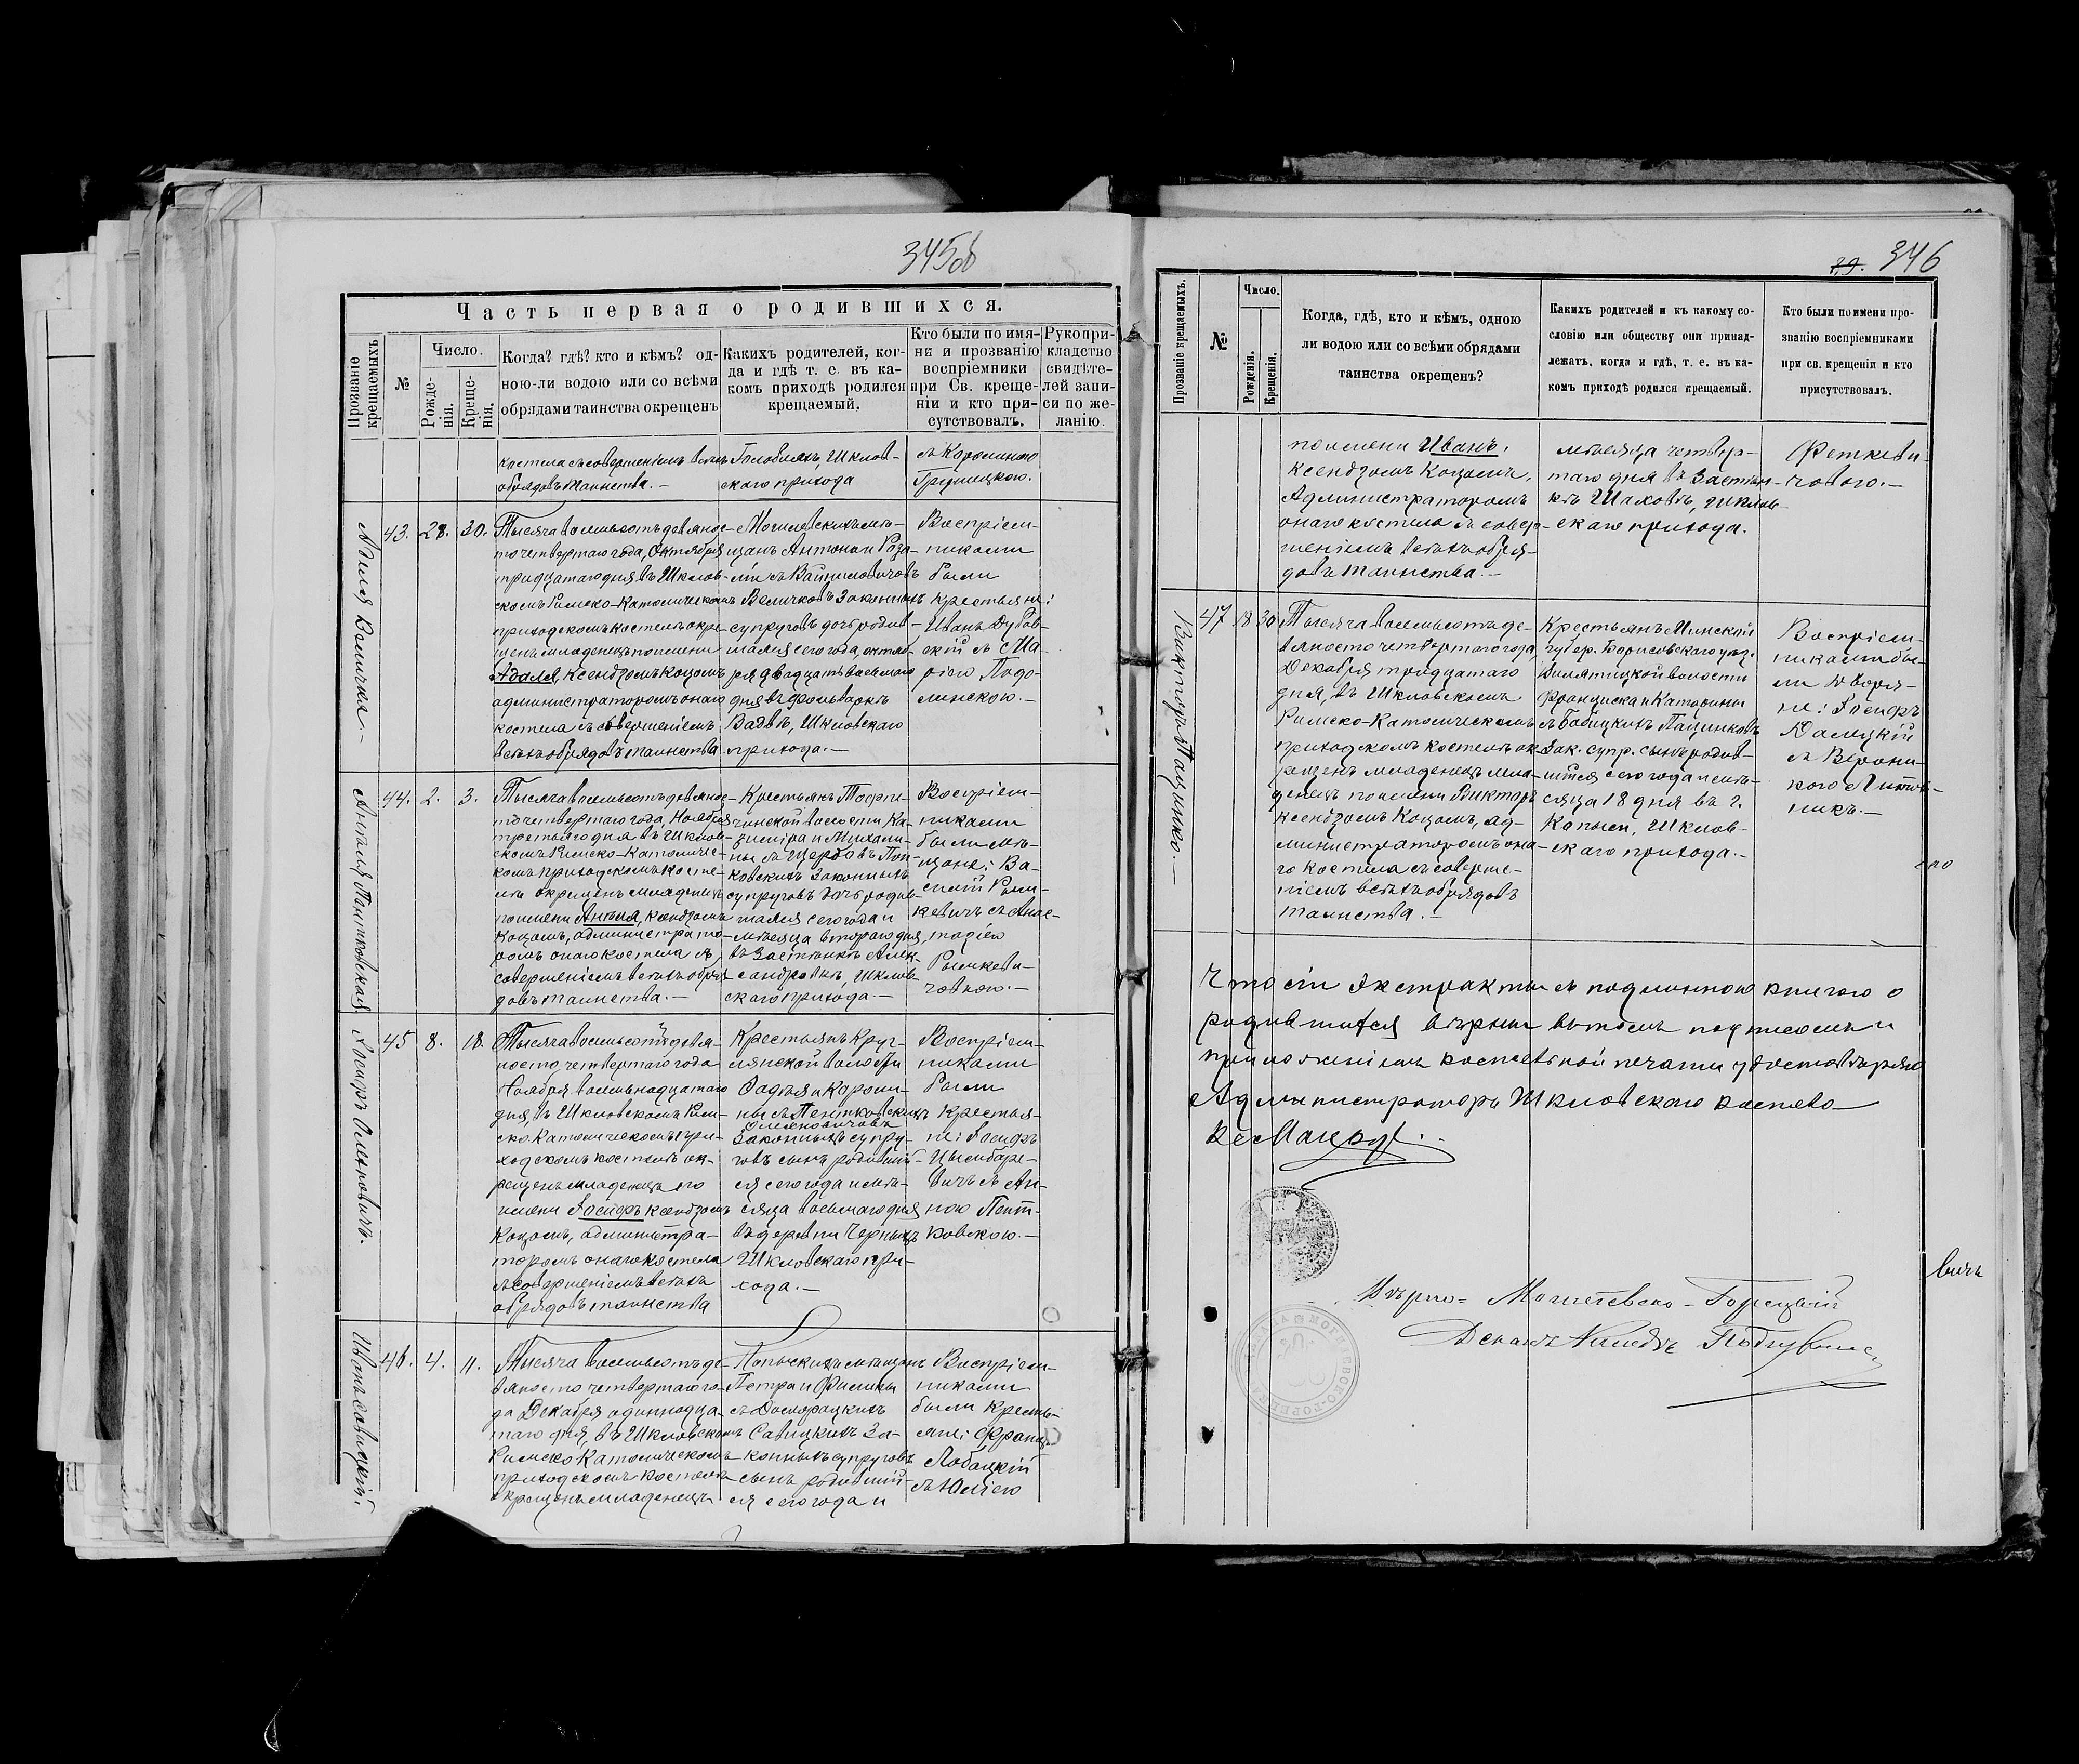 345об
Часть первая о родившихся.
Прозваніе крещаемыхъ
№
Число.
Рожде-
нія.
Креще-
нія.
Когда? гдѣ? кто и кѣмъ? од-
ною-ли водою или со всѣми
обрядами таинства окрещенъ
Какихъ родителей, ког-
да и гдѣ т. е. въ ка-
комъ приходѣ родился
крещаемый.
Кто были по имя-
ни и прозванію
воспріемники
при Св. креще-
ніи и кто при-
сутствовалъ.
Рукопри-
кладство
свидѣте-
лей запи-
си по же-
ланію.
костела съ совершеніемъ всѣхъ
обрядовъ Таинства.—
Шклов-
скаго прихода
съ Каролиною
Адаля Величко.—
43.
28.
30.
Тысяча восемьсотъ девяно-
сто четвертаго года, Октября
тридцатаго дня въ Шклов-
скомъ Римско-Католическомъ
приходскомъ костелѣ окре-
щенъ младенецъ по имени
Адаля, Ксендзомъ Коцомъ
администраторомъ онаго
костела съ совершеніемъ
всѣхъ обрядовъ таинства
Могилевскихъ мѣ-
щанъ Антона и Роза-
ліи съ Войниловичовъ
Величковъ Законныхъ
супруговъ дочь родив-
шаяся сего года, октяб-
ря двадцать восьмаго
дня въ фольваркѣ
Шкловскаго
прихода.—
Воспріем-
никами
были
крестьяне:
Иванъ Дубов-
скій съ Ма-
ріею Подо-
линскою.—
Ангеля Пентковская
44.
2.
3.
Тысяча восемьсотъ девяно-
сто четвертаго года, Ноября
третьяго дня въ Шклов-
скомъ Римско-Католичес-
комъ приходскомъ косте-
лѣ окрещенъ младенецъ
по имени Ангеля, Ксендзомъ
Коцомъ, администрато-
ромъ онаго костела съ
совершеніемъ всѣхъ обря-
довъ таинства.—
Крестьянъ
волости Ка-
зиміра и Михали-
ны съ Щербовъ Пен-
ковскихъ Законныхъ
супруговъ дочь родив-
шаяся сего года и
мѣсяца втораго дня
въ Застѣнкѣ Алек-
сандровкѣ, Шклов-
скаго прихода.—
Воспріем-
никами
были мѣ-
щане: Ва-
силій Рым-
кевичъ съ Анас-
тазіею
Рымкеви-
човною.—
Іосифъ Осмоловичъ.
45
8.
18.
Тысяча восемьсотъ девя-
носто четвертаго года
Ноября восемьнадцатаго
дня, въ Шкловскомъ Рим-
ско-Католическомъ при-
ходскомъ костелѣ ок-
рещенъ младенецъ по
имени Іосифъ Ксендзомъ
Коцомъ, администра-
торомъ онаго костела
съ совершеніемъ всѣхъ
обрядовъ таинства
Крестьянъ Круг-
лянской волости
Фадѣя и Кароли-
ны съ Пентковскихъ
Законныхъ супру-
говъ сынъ родивший-
ся сего года и мѣ-
сяца восьмаго дня
въ деревни Черныхъ
Шкловскаго при-
хода.—
Воспріем-
никами
были
крестья-
не: Іосифъ
Цымбаре-
вичъ съ Ан-
ною Пент-
ковскою.—
Иванъ Савицкій.
46.
4.
11.
Тысяча восемьсотъ де-
вяносто четвертаго го-
да Декабря одиннадца-
таго дня, въ Шкловскомъ
Римско Католическомъ
приходскомъ костелѣ
окрещенъ младенецъ
Копыскихъ мѣщанъ
Петра и Филины
съ Домарацкихъ
Савицкихъ За-
конныхъ супруговъ
сынъ родивший-
ся сего года и
Воспріем-
никами
были Кресть-
яне:
Лобацкій
съ Юліею
346
Прозваніе крещаемыхъ.
№
Число.
Рожденія.
Крещенія.
Когда, гдѣ, кто и кѣмъ, одною
ли водою или со всѣми обрядами
таинства окрещенъ?
Какихъ родителей и къ какому со-
словію или обществу они принад-
лежатъ, когда и гдѣ, т. е. въ ка-
комъ приходѣ родился крещаемый.
Кто были по имени про-
званію воспріемниками
при св. крещеніи и кто
присутствовалъ.
по имени Иванъ,
Ксендзомъ Коцомъ,
Администраторомъ
онаго костела съ совер-
шеніемъ всѣхъ обря-
довъ таинства.—
мѣсяца четвер-
таго дня въ Застѣн-
кѣ Шаховѣ, Шклов-
скаго прихода.
Феткеви-
човою.—
Викторъ Пацинко.—
47
18
30
Тысяча восемьсотъ де-
вяносто четвертаго года,
Декабря тридцатаго
дня, въ Шкловскомъ
Римско-Католическомъ
приходскомъ костелѣ ок-
рещенъ младенецъ мла-
денецъ по имени Викторъ
Ксендзомъ Коцомъ, ад-
министраторомъ она-
го костела съ соверше-
ніемъ всѣхъ обрядовъ
таинства.—
Крестьянъ Минской
губер. Борисовскаго уѣз.
волости
Франциска и Катарины
съ Бабицкихъ Пацинковъ
Зак. супр. сынъ родив-
шійся сего года и мѣ-
сяца 18 дня въ г.
Копыси, Шклов-
скаго прихода.—
Воспріем-
никами бы-
ли дворя-
не: Іосифъ
Залецкій
съ Верони-
кою
Что сіи экстракты съ подлинною книгою о
родившихся вѣрны въ томъ подписомъ и
приложеніемъ костельной печати удостовѣряю
Администраторъ Шкловскаго костела
вичъ
Вѣрно: Могилевско-Горецкій
Деканъ